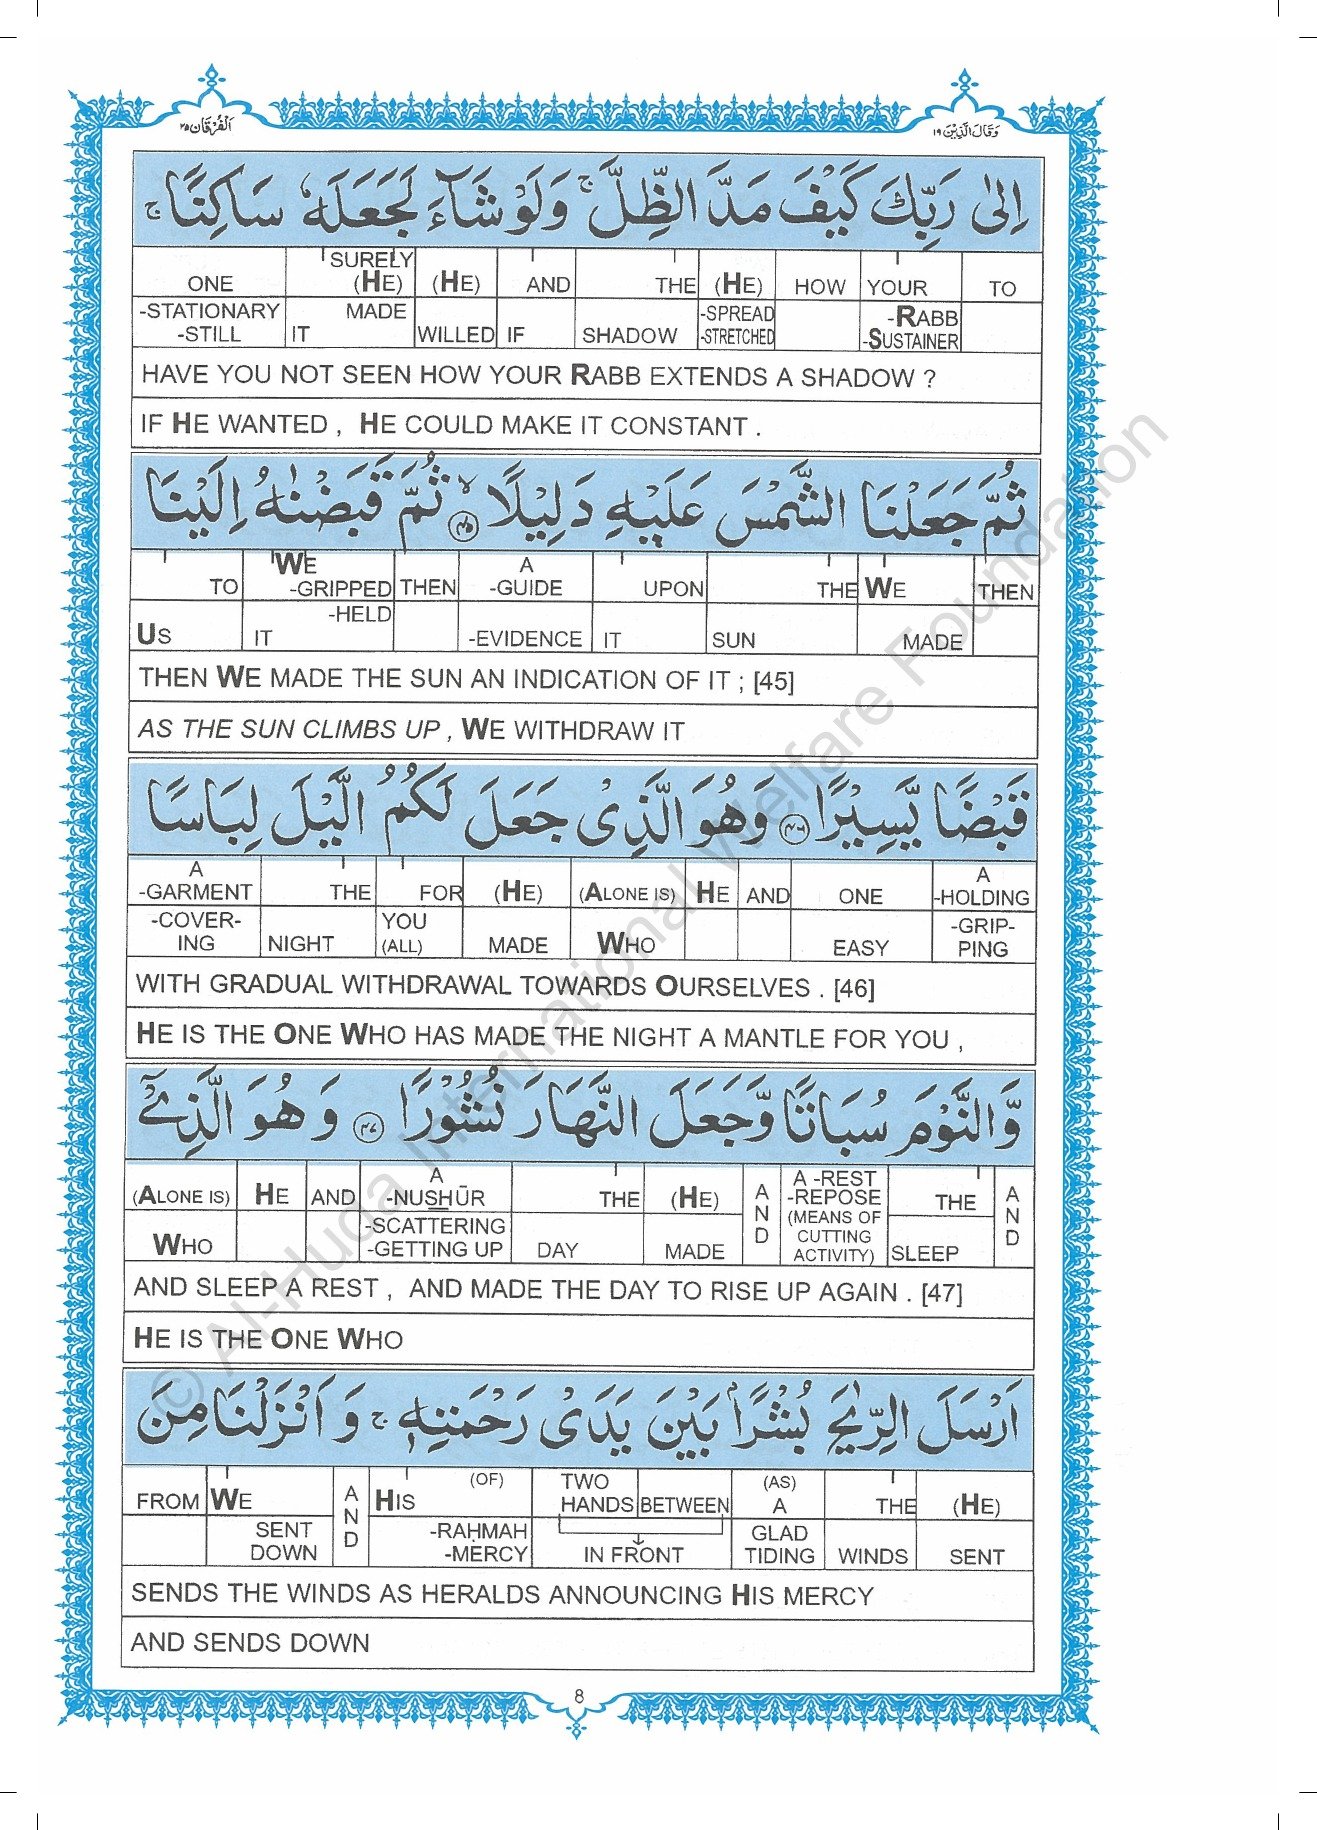 اَلْفُرْقَان ٢٥
وَقَالَ الَّذِيْنَ ١٩
اِلٰى رَبِّكَ كَيْفَ مَدَّ الظِّلَّ ۚ وَلَوْ شَآءَ لَجَعَلَهٗ سَاكِنًا ۚ
ONE SURELY (HE) (HE) AND THE (HE) HOW YOUR TO
-STATIONARY -STILL IT MADE WILLED IF SHADOW -SPREAD -STRETCHED -RABB -SUSTAINER
HAVE YOU NOT SEEN HOW YOUR RABB EXTENDS A SHADOW ?
IF HE WANTED , HE COULD MAKE IT CONSTANT .
ثُمَّ جَعَلْنَا الشَّمْسَ عَلَيْهِ دَلِيْلًا ۙ﴿٤٥﴾ ثُمَّ قَبَضْنٰهُ اِلَيْنَا
TO WE -GRIPPED THEN A -GUIDE UPON THE WE THEN
US IT -HELD -EVIDENCE IT SUN MADE
THEN WE MADE THE SUN AN INDICATION OF IT ; [45]
AS THE SUN CLIMBS UP , WE WITHDRAW IT
قَبْضًا يَّسِيْرًا ﴿٤٦﴾ وَهُوَ الَّذِىْ جَعَلَ لَكُمُ الَّيْلَ لِبَاسًا
A -GARMENT THE FOR (HE) (ALONE IS) HE AND ONE A -HOLDING
-COVER-ING NIGHT YOU (ALL) MADE WHO EASY -GRIP-PING
WITH GRADUAL WITHDRAWAL TOWARDS OURSELVES . [46]
HE IS THE ONE WHO HAS MADE THE NIGHT A MANTLE FOR YOU ,
وَّالنَّوْمَ سُبَاتًا وَّجَعَلَ النَّهَارَ نُشُوْرًا ﴿٤٧﴾ وَهُوَ الَّذِىْٓ
(ALONE IS) HE AND A -NUSHŪR THE (HE) AND A -REST -REPOSE (MEANS OF CUTTING ACTIVITY) THE AND
WHO -SCATTERING -GETTING UP DAY MADE SLEEP
AND SLEEP A REST , AND MADE THE DAY TO RISE UP AGAIN . [47]
HE IS THE ONE WHO
اَرْسَلَ الرِّيٰحَ بُشْرًۢا بَيْنَ يَدَىْ رَحْمَتِهٖ ۚ وَاَنْزَلْنَا مِنَ
FROM WE AND HIS (OF) TWO HANDS BETWEEN (AS) A THE (HE)
SENT DOWN -RAḤMAH -MERCY IN FRONT GLAD TIDING WINDS SENT
SENDS THE WINDS AS HERALDS ANNOUNCING HIS MERCY
AND SENDS DOWN
8
© Al-Huda International Welfare Foundation